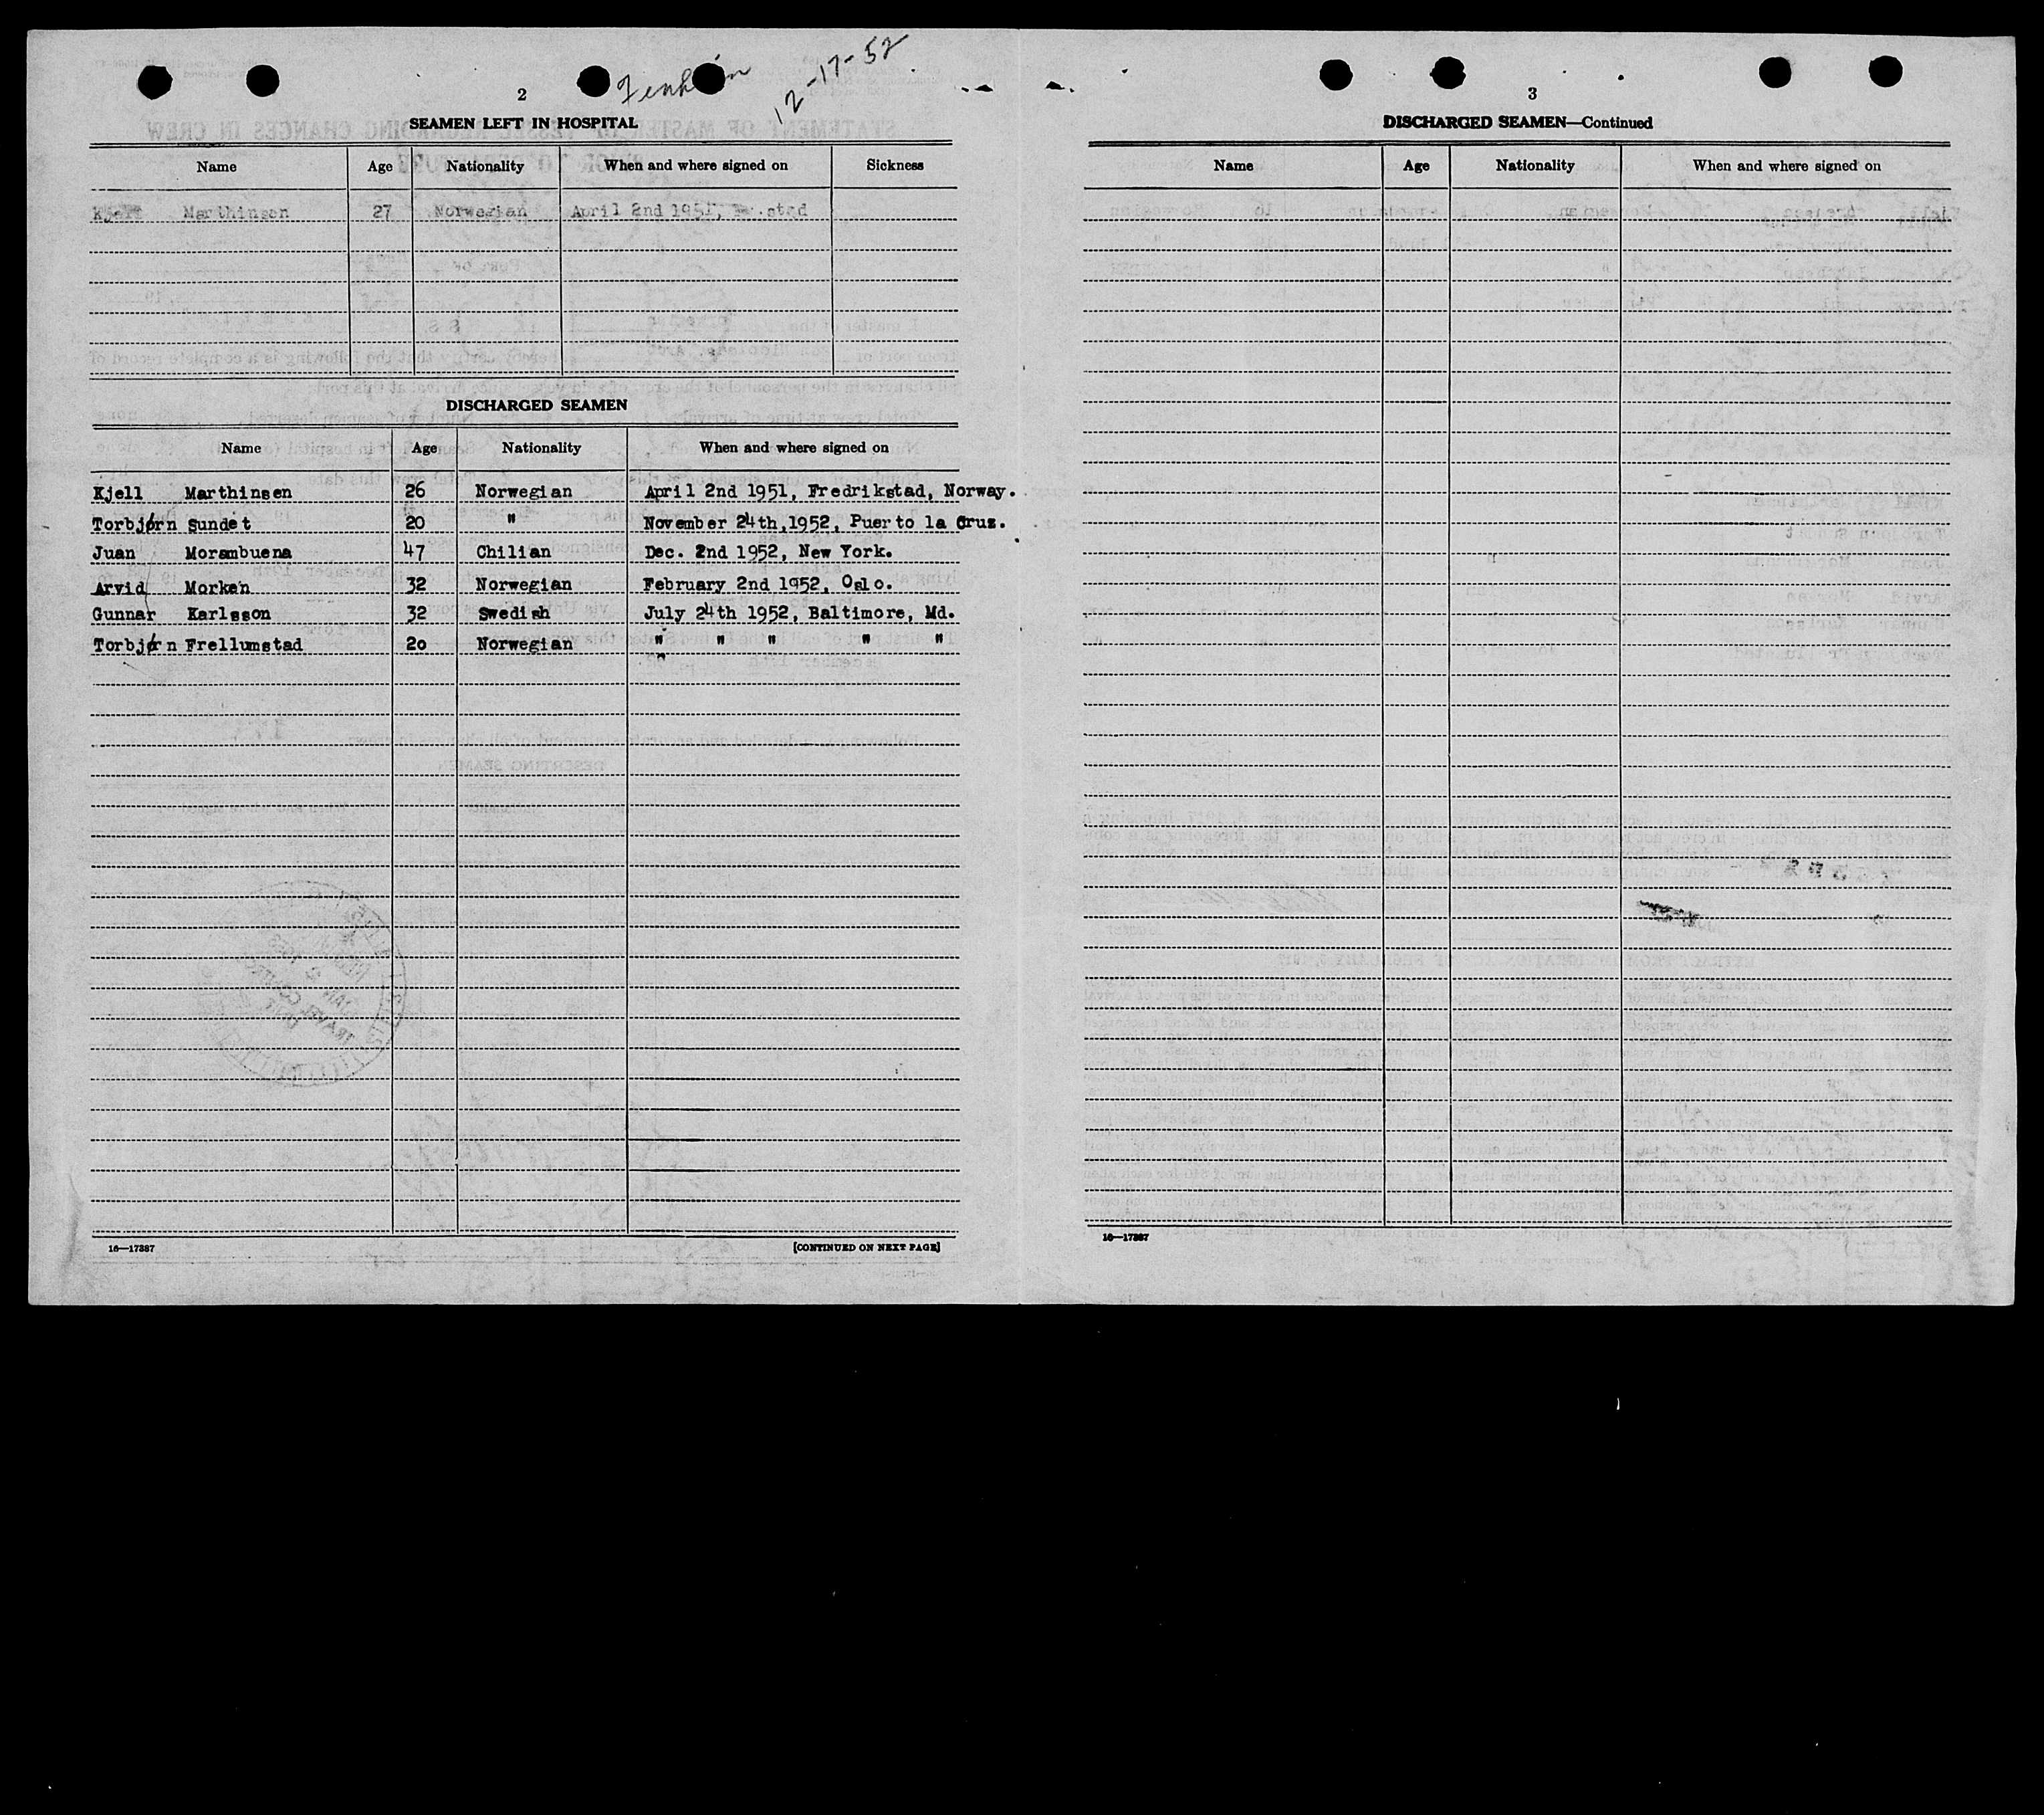 2
12-17-52
SEAMEN LEFT IN HOSPITAL
Name Age Nationality When and where signed on Sickness
Marthinsen 27 Norwegian April 2nd 1951,
DISCHARGED SEAMEN
Name Age Nationality When and where signed on
Kjell Marthinsen 26 Norwegian April 2nd 1951, Fredrikstad, Norway.
Torbjørn Sundet 20 " November 24th,1952, Puerto la Cruz.
Juan Morambuena 47 Chilian Dec. 2nd 1952, New York.
Arvid Morken 32 Norwegian February 2nd 1952, Oslo.
Gunnar Karlsson 32 Swedish July 24th 1952, Baltimore, Md.
Torbjørn Frellumstad 20 Norwegian " " " " "
16—17387
[CONTINUED ON NEXT PAGE]
3
DISCHARGED SEAMEN—Continued
Name Age Nationality When and where signed on
16—17387